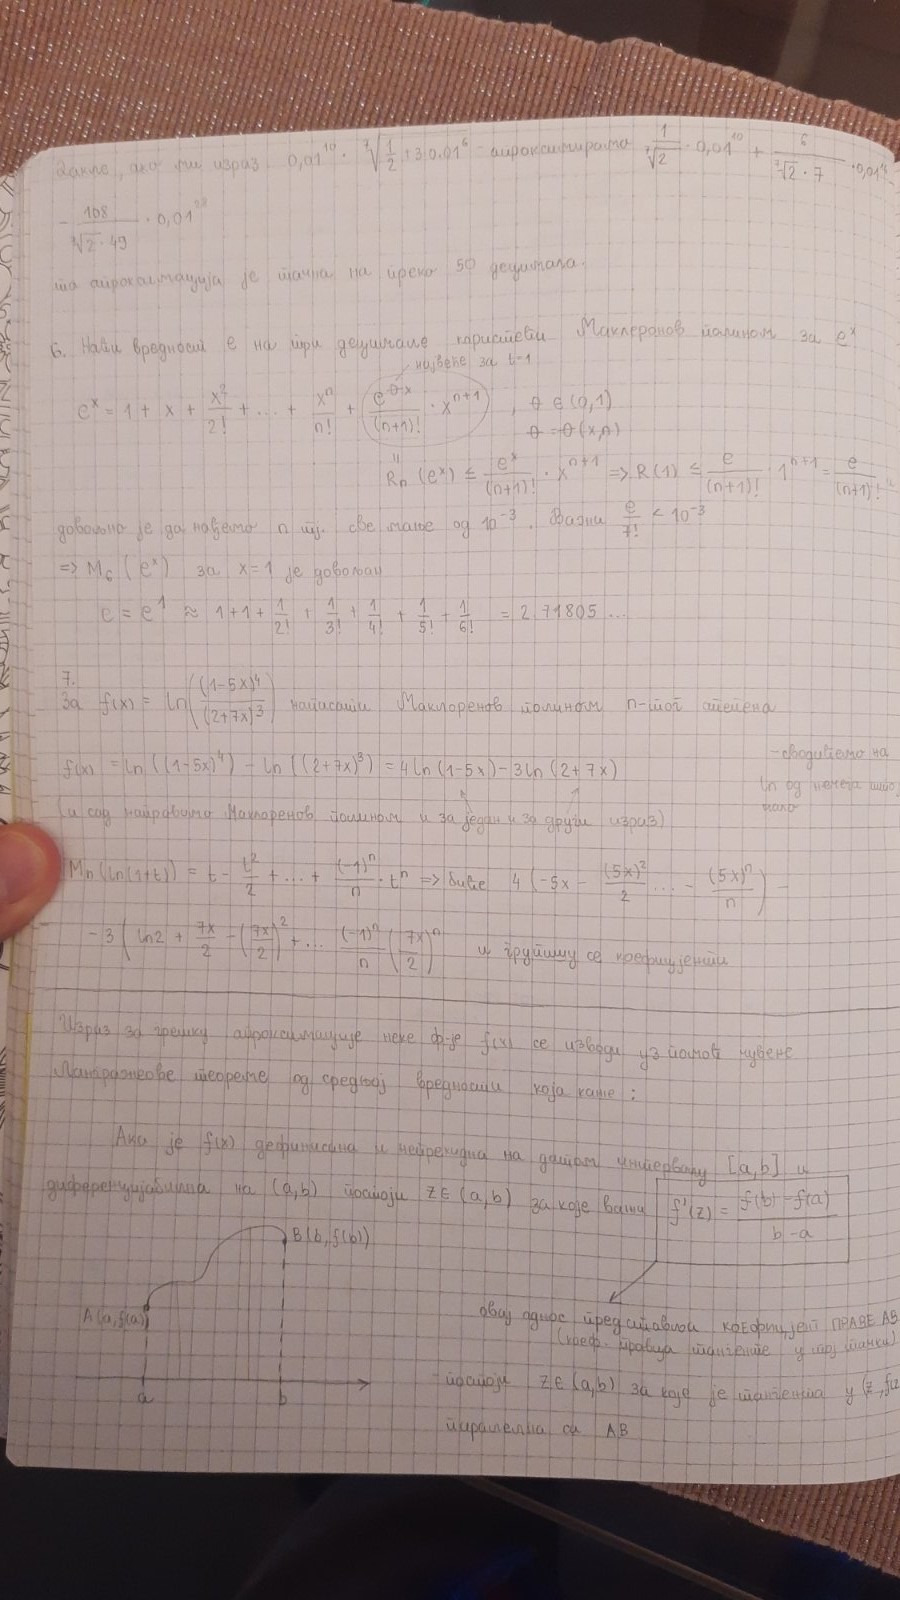 Дакле, ако би израз 0,01¹⁰ · ⁷√(1/2 + 3·0.01⁶) апроксимирато 1/⁷√2 · 0,01¹⁰ + 6/(⁷√2 · 7) · 0,01¹⁶
- 108/(⁷√2 · 49) · 0,01²²
та апроксимација је тачна на преко 50 децимала.
6. Наћи вредност e на три децимале користећи Маклоренов полином за eˣ
највеће за t=1
eˣ = 1 + x + x²/2! + ... + xⁿ/n! + e^(θx)/(n+1)! · xⁿ⁺¹ , θ ∈ (0,1)
θ = θ(x,n)
Rₙ(eˣ) ≤ eˣ/(n+1)! · xⁿ⁺¹ => R(1) ≤ e/(n+1)! · 1ⁿ⁺¹ = e/(n+1)!
довољно је да нађемо n тј. све мање од 10⁻³. Важи e/7! < 10⁻³
=> M₆(eˣ) за x=1 је довољан
e = e¹ ≈ 1+1+ 1/2! + 1/3! + 1/4! + 1/5! + 1/6! = 2.71805...
7.
За f(x) = ln((1-5x)⁴/(2+7x)³) написати Маклоренов полином n-тог степена
f(x) = ln((1-5x)⁴) - ln((2+7x)³) = 4ln(1-5x) - 3ln(2+7x)
-сводићемо на
ln од нечега што
(и сад направимо Маклоренов полином и за један и за други израз)
Mₙ(ln(1+t)) = t - t²/2 + ... + (-1)ⁿ/n · tⁿ => биће 4(-5x - (5x)²/2 ... - (5x)ⁿ/n) -
-3(ln2 + 7x/2 - (7x/2)² + ... (-1)ⁿ/n (7x/2)ⁿ и групишу се коефицијенти
Израз за грешку апроксимације неке ф-је f(x) се изводи уз помоћ чувене
Лагранжове теореме од средњој вредности која каже:
Ако је f(x) дефинисана и непрекидна на датом интервалу [a,b] и
диференцијабилна на (a,b) постоји z∈(a,b) за које важи f'(z) = (f(b) - f(a))/(b-a)
B(b, f(b))
A(a, f(a))
овај однос представља КОЕФицијент ПРАВЕ AB
(коеф. правца тангенте у тој тачки)
-постоји z∈(a,b) за које је тангента у (z, f(z
паралелна са AB
a b